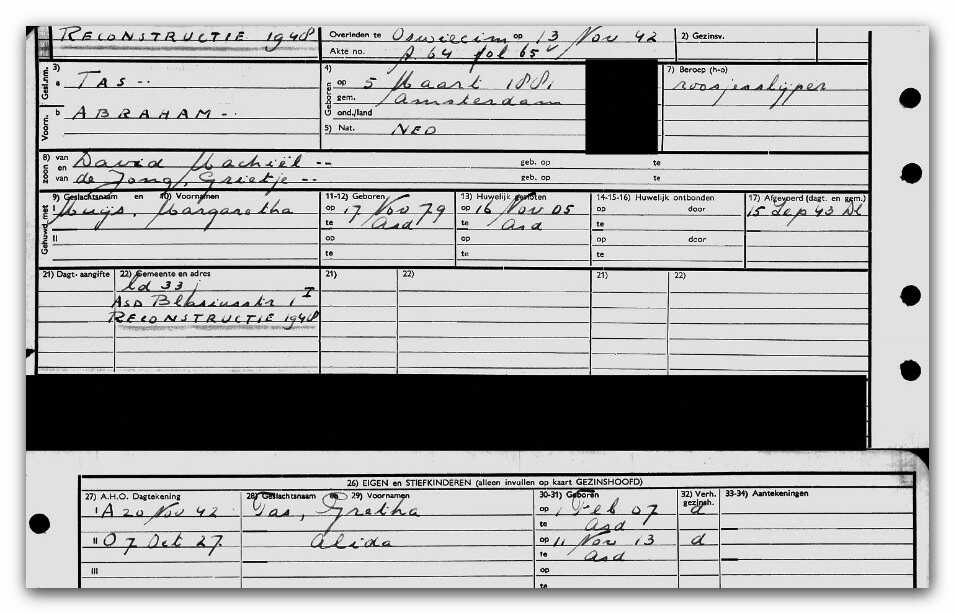 RECONSTRUCTIE 1948
Overleden te Oswiecim op 13 Nov 42
Akte no. A 64 fol 65v
2) Gezinsv.
Gesl.nm. 3) a TAS --
Voorn. b ABRAHAM --
4) Geboren op 5 Maart 1881
gem. Amsterdam
ond./land
5) Nat. NED
7) Beroep (h-o)
roosjesslijper
8) zoon van David Machiël -- geb. op te
en van de Jong, Grietje -- geb. op te
Gehuwd met 9) Geslachtsnaam en 10) Voornamen
11-12) Geboren 13) Huwelijk gesloten 14-15-16) Huwelijk ontbonden 17) Afgevoerd (dagt. en gem.)
I Muijs, Margaretha op 17 Nov 79 op 16 Nov 05 op door 15 Sep 43 Dl
te Asd te Asd te
II op op op door
te te te
21) Dagt. aangifte 22) Gemeente en adres 21) 22) 21) 22)
Ld 33
ASD Blasiusstr 1 I
RECONSTRUCTIE 1948
26) EIGEN en STIEFKINDEREN (alleen invullen op kaart GEZINSHOOFD)
27) A.H.O. Dagtekening 28) Geslachtsnaam en 29) Voornamen 30-31) Geboren 32) Verh. gezinsh. 33-34) Aantekeningen
I A 20 Nov 42 Tas, Gretha op 1 Feb 07 d
te Asd
II O 7 Oct 27 Alida op 11 Nov 13 d
te Asd
III op
te